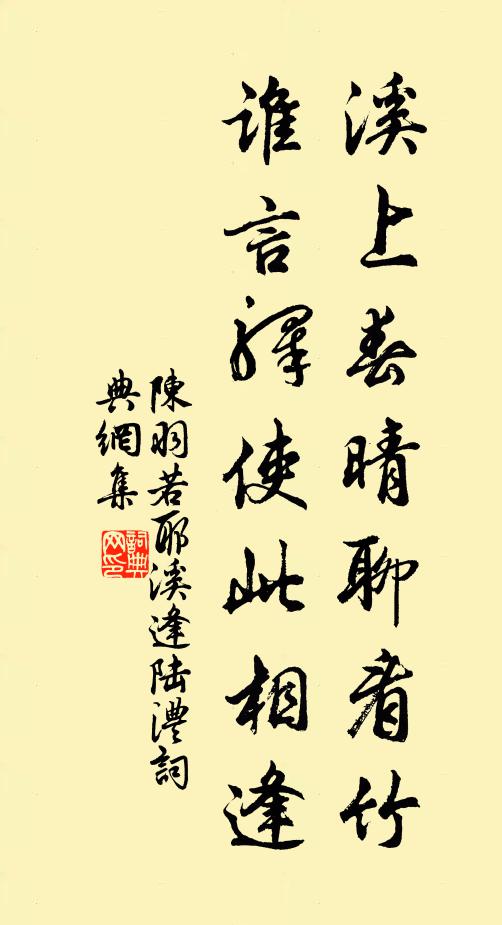 溪上春晴聊看竹
谁言驿使此相逢
陳羽若耶溪逢陆澧詞
典網集
詞典
网印